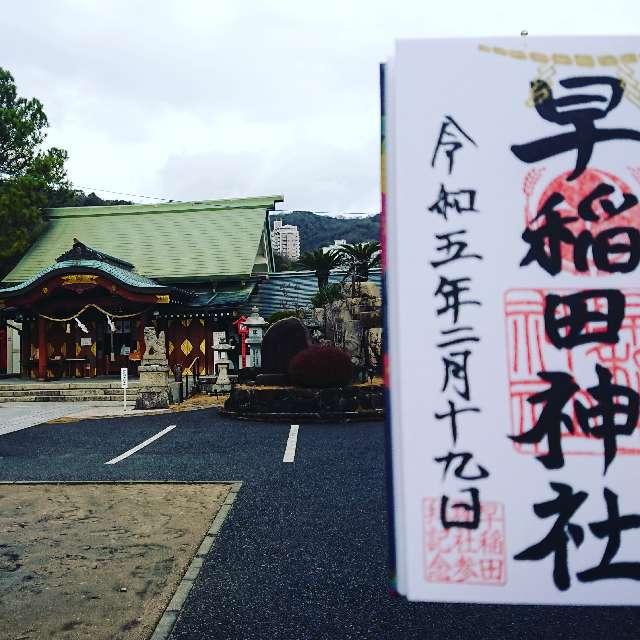 早稲田神社
令和五年二月十九日
早稲田
神社参
拝記念